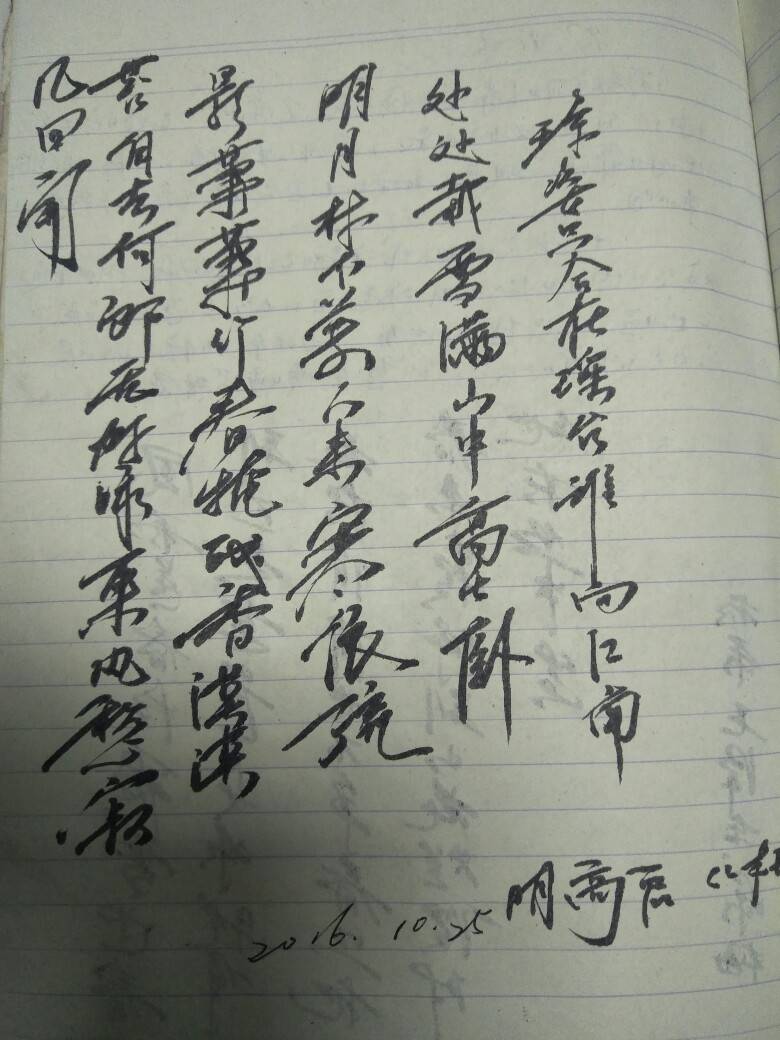 琼姿只合在瑶台谁向江南
处处栽雪满山中高士卧
明月林下美人来寒依疏
影萧萧竹春掩残香漠漠
苔自去何郎无好咏东风愁寂
几回开
2016.10.25 明高启